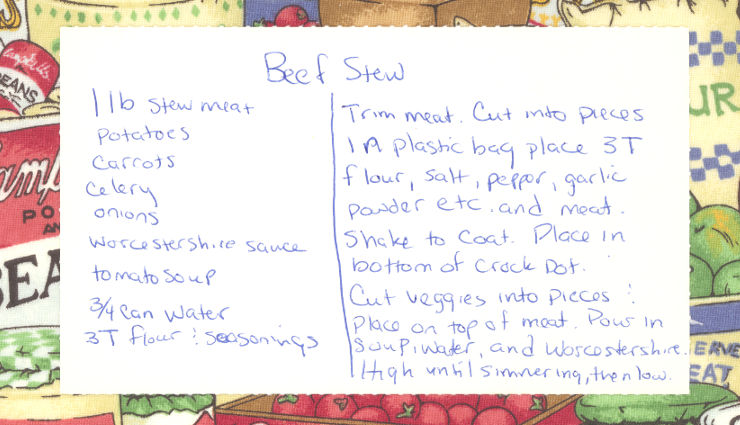 Beef Stew
1 lb stew meat
Potatoes
Carrots
Celery
onions
Worcestershire sauce
tomato soup
3/4 can water
3T flour & seasonings
Trim meat. Cut into pieces
In plastic bag place 3T
flour, salt, pepper, garlic
powder etc. and meat.
Shake to coat. Place in
bottom of Crock Pot.
Cut veggies into pieces &
Place on top of meat. Pour in
Soup, water, and Worcestershire.
High until simmering, then low.
Campbell's
BEANS
BEA
UR
EAT